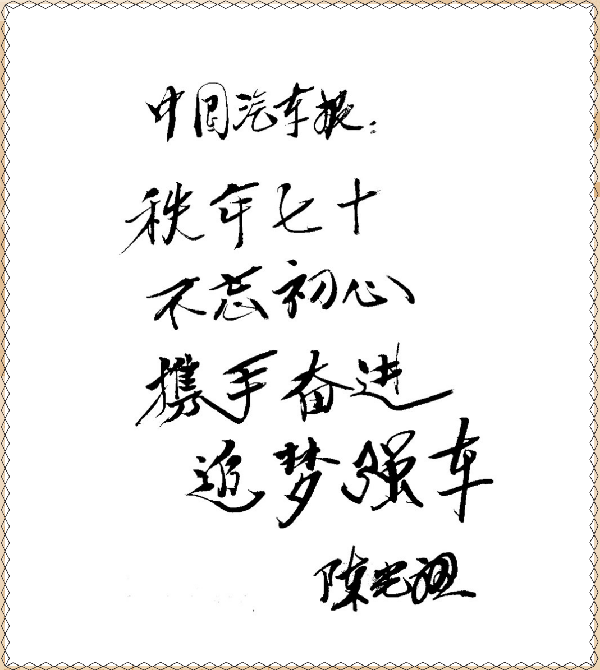 中国汽车报：
秩年七十
不忘初心
携手奋进
追梦强车
陈光祖